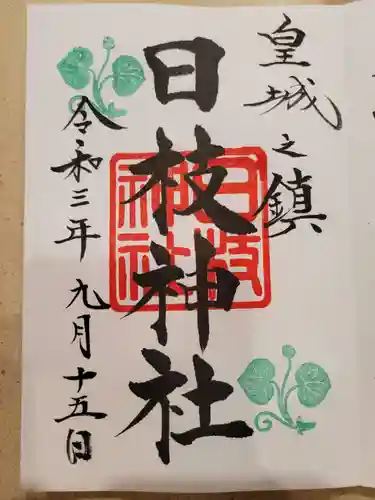 皇城之鎮
日枝神社
令和三年九月十五日
日枝神社